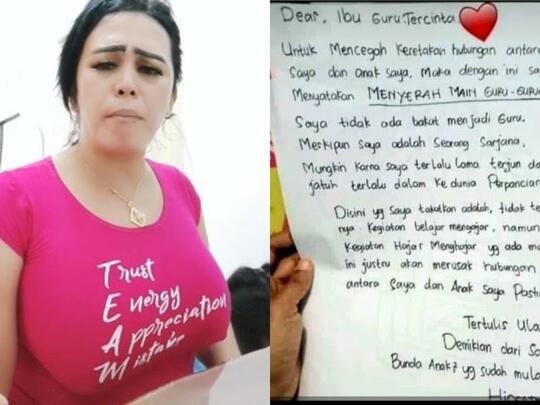 Trust
Energy
Appreciation
Mistake
Dear, Ibu Guru Tercinta
Untuk Mencegah Keretakan hubungan antara
Saya dan anak saya, Maka dengan ini sa
Menyatakan MENYERAH MAIN GURU-GURU
Saya tidak ada bakat menjadi Guru.
Meskipun saya adalah Seorang Sarjana,
Mungkin Karna saya terlalu lama terjun da
jatuh terlalu dalam Ke dunia Perpancian
Disini yg Saya takutkan adalah, tidak te
nya Kegiatan belajar mengajar, namun
Kegiatan Hajar Menghajar yg ada ma
ini justru akan merusak hubungan
antara Saya dan Anak Saya Past
Tertulis Ula
Demikian dari Sa
Bunda Anak2 yg sudah mula